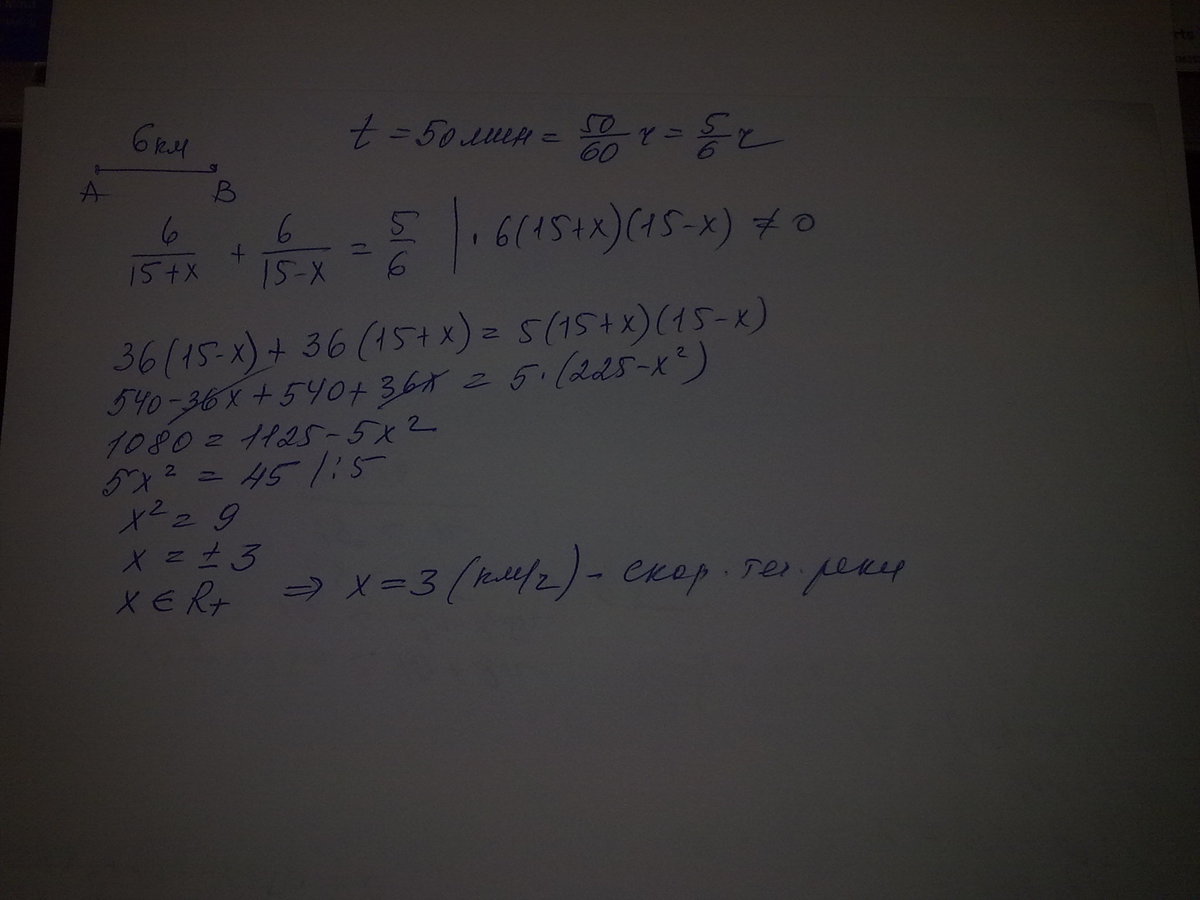 6км
t = 50 мин = 50/60 ч = 5/6 ч
A B
6/(15+x) + 6/(15-x) = 5/6 | · 6(15+x)(15-x) ≠ 0
36(15-x) + 36(15+x) = 5(15+x)(15-x)
540-36x+540+36x = 5·(225-x²)
1080 = 1125-5x²
5x² = 45 |:5
x² = 9
x = ±3
x ∈ R+ ⇒ x = 3 (км/ч) - скор. теч. реки